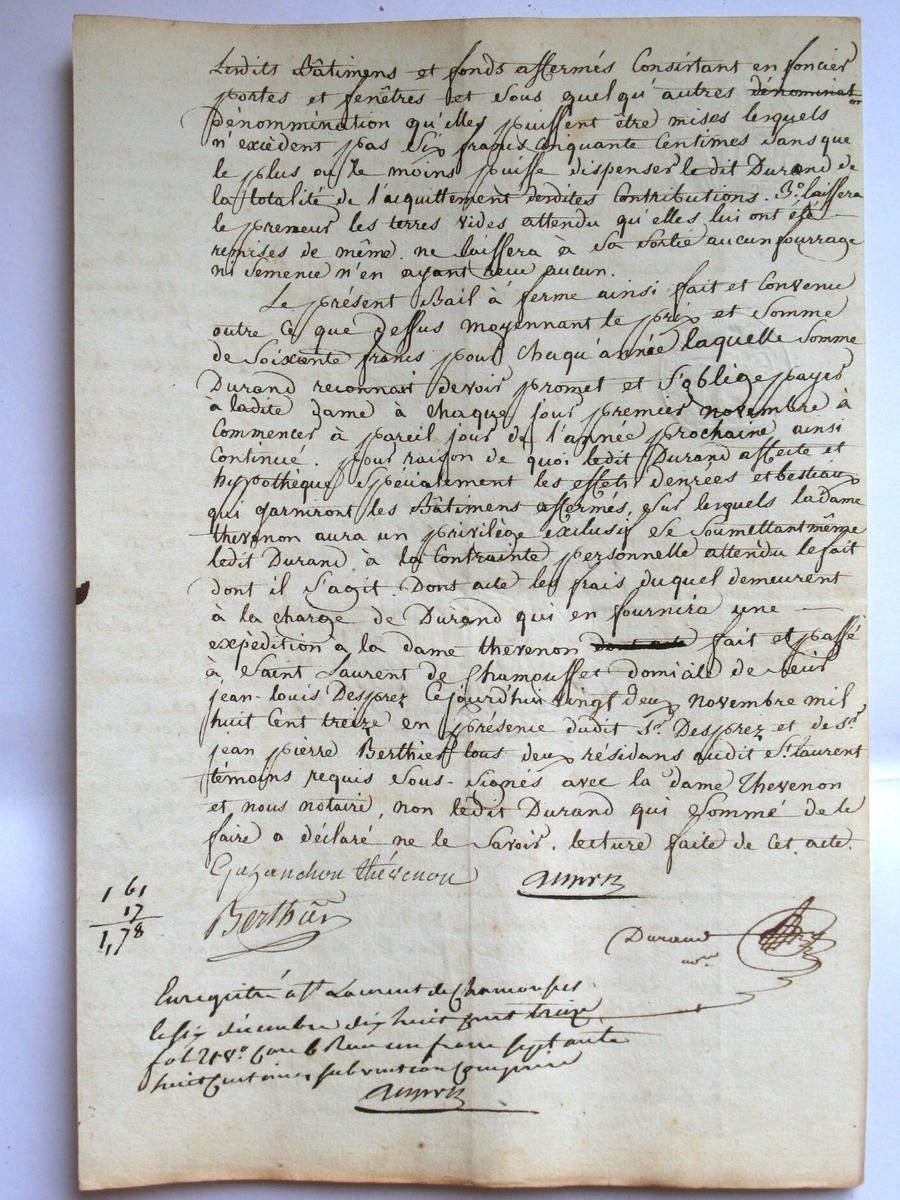 Lesdits Bâtimens et fonds affermés Consistant en foncier
portes et fenêtres et sous quelqu'autres dénominat
on
Dénommination qu'elles puissent être mises lesquels
n'excèdent pas Six francs cinquante Centimes sans que
le plus ou le moins puisse dispenser ledit Durand de
la totalité de l'acquittement desdites Contributions. 3.o laissera
le preneur les terres vides attendu qu'elles lui ont été
remises de même. ne laissera à Sa Sortie aucun fourrage
ni Semence n'en ayant reçu aucun.
Le présent Bail à ferme ainsi fait et Convenu
outre Ce que Dessus moyennant le prix et Somme
de Soixante francs pour chaqu'année laquelle Somme
Durand reconnait devoir promet et S'oblige payer
à ladite Dame à chaque jour premier novembre à
Commencer à pareil jour de l'année prochaine ainsi
Continué. pour raison de quoi ledit Durand affecte et
hypothèque Spécialement les effets denrées et bestiaux
qui garniront les Bâtimens affermés, Sur lesquels la dame
thevenon aura un privilège exclusif Se Soumettant même
ledit Durand à la Contrainte personnelle attendu le fait
dont il s'agit. Dont acte les frais duquel demeurent
à la charge de Durand qui en fournira une
expédition a la dame thevenon dont acte fait et passé
à Saint Laurent de Chamousset domicile de Sieur
jean-louis Desprez Cejourdhui vingt deux novembre mil
huit Cent treize en présence dudit Sr. Desprez et de Sr.
jean pierre Berthier tous deux résidans audit St. laurent
témoins requis Sous-Signés avec la dame Thevenon
et nous notaire, non ledit Durand qui Sommé de le
faire a déclaré ne le Savoir. lecture faite de Cet acte.
thévenon
Berthier
Durand
1 61
17
1,78
Enregistré à St Laurent de Chamousset
le six décembre dix huit cent treize
fol 21 Vo Case 6 Reçu un franc septante
huit Centimes subvention Comprise